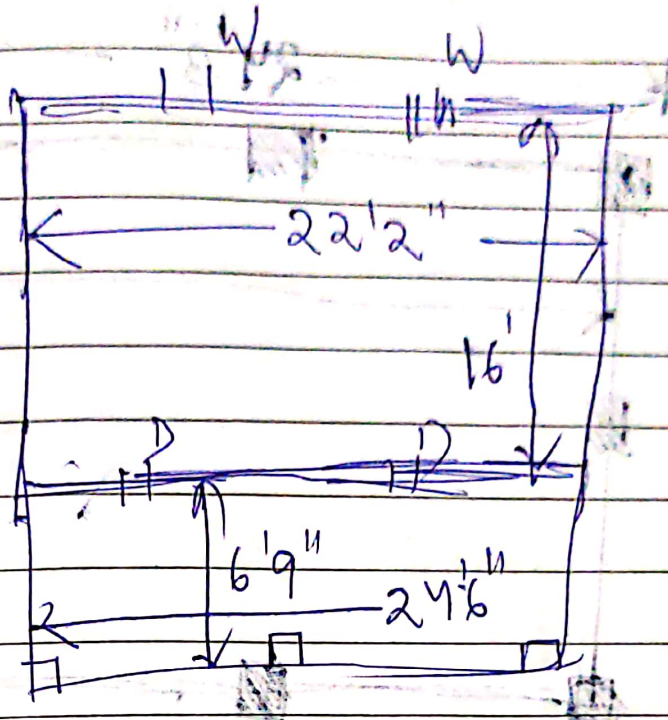 W W
22'2"
16'
D D
6'9"
24'6"